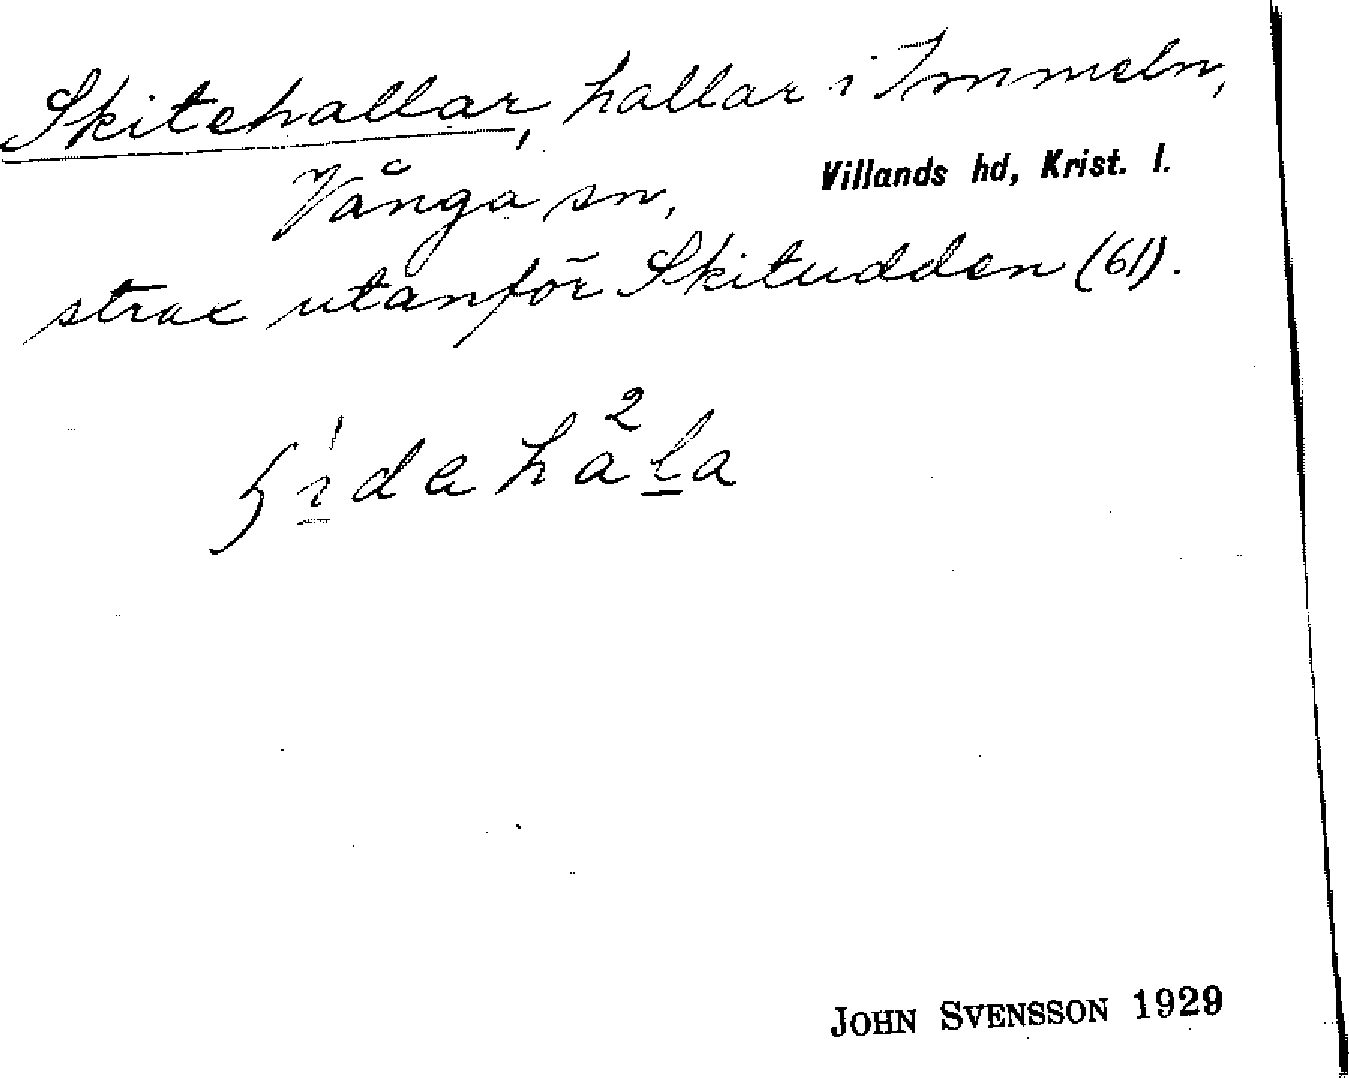 Skitehallar, hallar i Immeln,
Vånga sn, Villands hd, Krist. l.
strax utanför Skitudden (61).
JOHN SVENSSON 1929